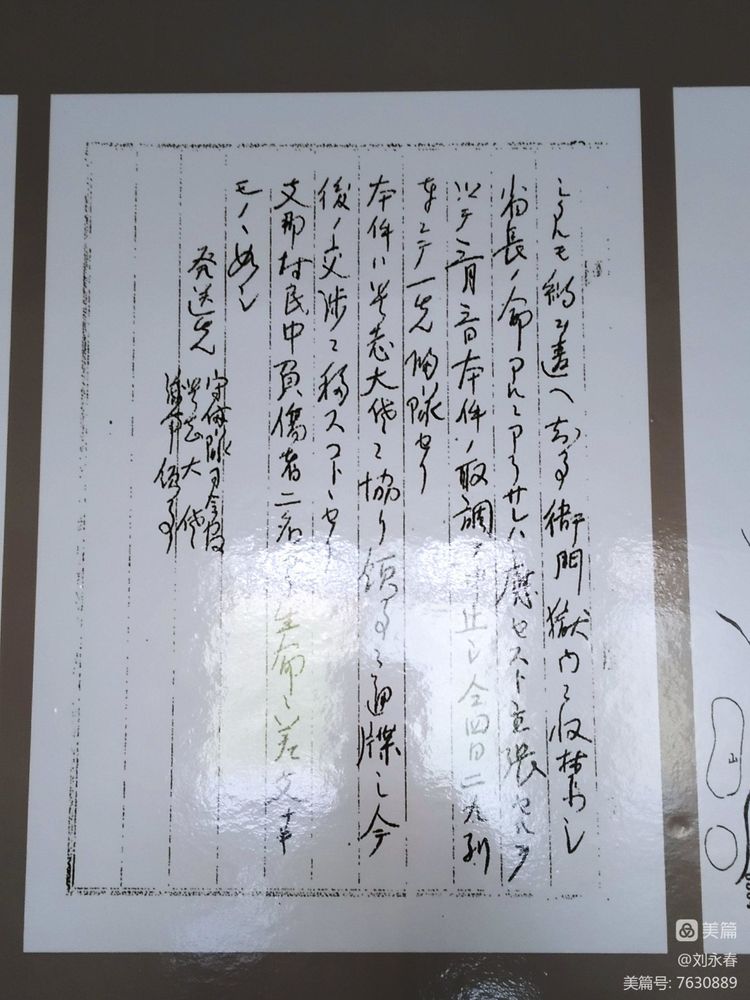 シタルモ 遣ヘ 衙門獄内ニ収禁シ
省長ノ命アルニアラサレハ應セスト主張セルヲ
以テ三月三日本件ノ取調ヲ中止シ仝四日二九列
車ニテ一先帰隊セリ
本件ハ 大佐ニ協リ領事ニ通牒シ今
後ノ交渉ニ移スコトヽセリ
支那村民中負傷者二名ハ生命ニハ差支ナキ
モノヽ如シ
発送先
守備隊司令官
大佐
領事
美篇
@刘永春
美篇号: 7630889